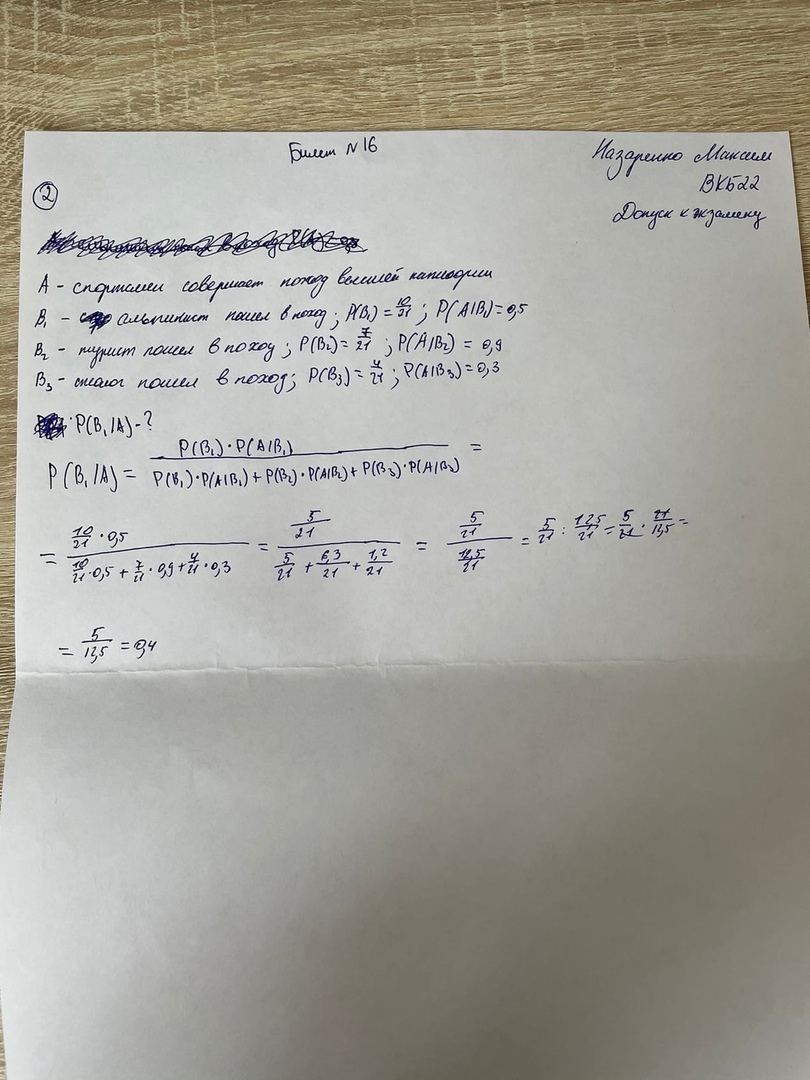 Билет №16
Назаренко Максим
ВКБ22
Допуск к экзамену
2
A - спортсмен совершает поход высшей категории
B₁ - альпинист пошел в поход; P(B₁) = 10/21; P(A|B₁) = 0,5
B₂ - турист пошел в поход; P(B₂) = 7/21; P(A|B₂) = 0,9
B₃ - пошел в поход; P(B₃) = 4/21; P(A|B₃) = 0,3
P(B₁/A) - ?
P(B₁/A) = P(B₁)·P(A|B₁) / P(B₁)·P(A|B₁) + P(B₂)·P(A|B₂) + P(B₃)·P(A|B₃) =
= 10/21 · 0,5 / 10/21 · 0,5 + 7/21 · 0,9 + 4/21 · 0,3 = 5/21 / 5/21 + 6,3/21 + 1,2/21 = 5/21 / 12,5/21 = 5/21 : 12,5/21 = 5/21 · 21/12,5 =
= 5/12,5 = 0,4